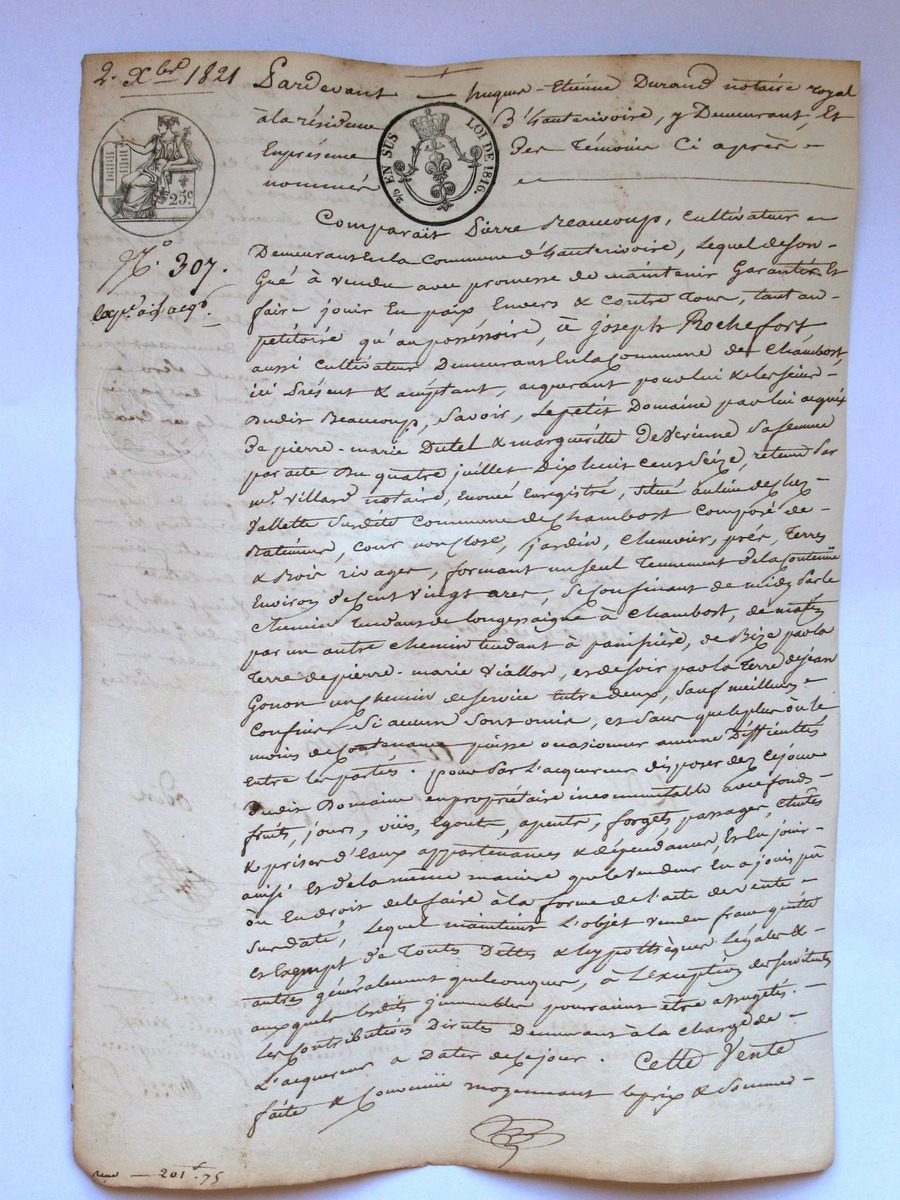 2. Xbre 1821
25c
Nº. 307.
2/5 EN SUS LOI DE 1816.
Pardevant hugue-Etiénne Durand notaire royal
à la résidence D'hauterivoire, y Demeurant, Et
En présence Des Témoins Ci après
nommés
Comparait Pierre Beaucoup, Cultivateur
Demeurant En la Commune d'hauterivoire, Lequel de son
Gré à vendu avec promesse de maintenir Garantir Et
faire jouir En paix, Envers & contre Tous, tant au
pétitoire qu'au posséssoire, à joseph Rochefort
aussi Cultivateur Demeurant En la Commune de Chambost
ici Présent & acceptant, acquerant pour lui & les siens
Dudit Beaucoup, Savoir, Le petit Domaine par lui acquis
De pierre-marie Dutel & marguéritte De Vérénne Sa femme
par acte Du quatre juillet Dix huit cent Seize, retenu Par
me. Villard notaire, Enoncé Enregistré, Situé au lieu de chez
Vallette Susdite Commune de Chambost Composé de
Batimens, Cour non close, jardin, Chenevier, prés, Terres
& Bois rivages, formant un Seul Tennement De la Contenue
Environ De Cent Vingt ares, Se Confinant de midy Par le
Chemin Tendant de longessaigne à Chambost, de matin
par un autre Chemin tendant à panissière, de Bize par la
Terre de pierre-marie Viallon, et de soir par la Terre de jean
Gonon un chemin de service Entre deux, Sauf meilleurs
Confins Si aucuns Sont omis, et Sans que le plus ou le
moins de Contenance puisse occasionner aucune Difficultés
Entre les parties. pour Par L'acquereur disposer dez Ce jour
Dudit Domaine en propriétaire incommutable avec fonds
fruits, jours, vuës, Egouts, apents, forgets, passages, chutes
& prises d'eaux appartenances & dépendances, Et En jouir
ainsi Et De la même maniere que le vendeur En a joui pû
ou En droit de le faire à la forme de l'acte de vente
Sus daté, Lequel maintient L'objet vendu franc quitte
et Exempt De Toutes Dettes & hypothèques Légales &
autres généralement quelconques, à L'exception des servitudes
auxquels lesdits immeubles pourraient être assugetis.
Les Contributions Directes Demeurant à la charge de
L'acquereur a Dater de Ce jour. Cette Vente
faite & Convenüe moyennant le prix & Somme
201 f. 75